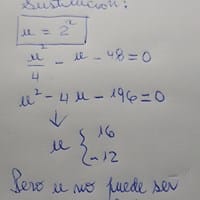 Sustitución:
u = 2^x
u²/4 - u - 48 = 0
u² - 4u - 196 = 0
↓
u { 16
-12
Pero u no puede ser